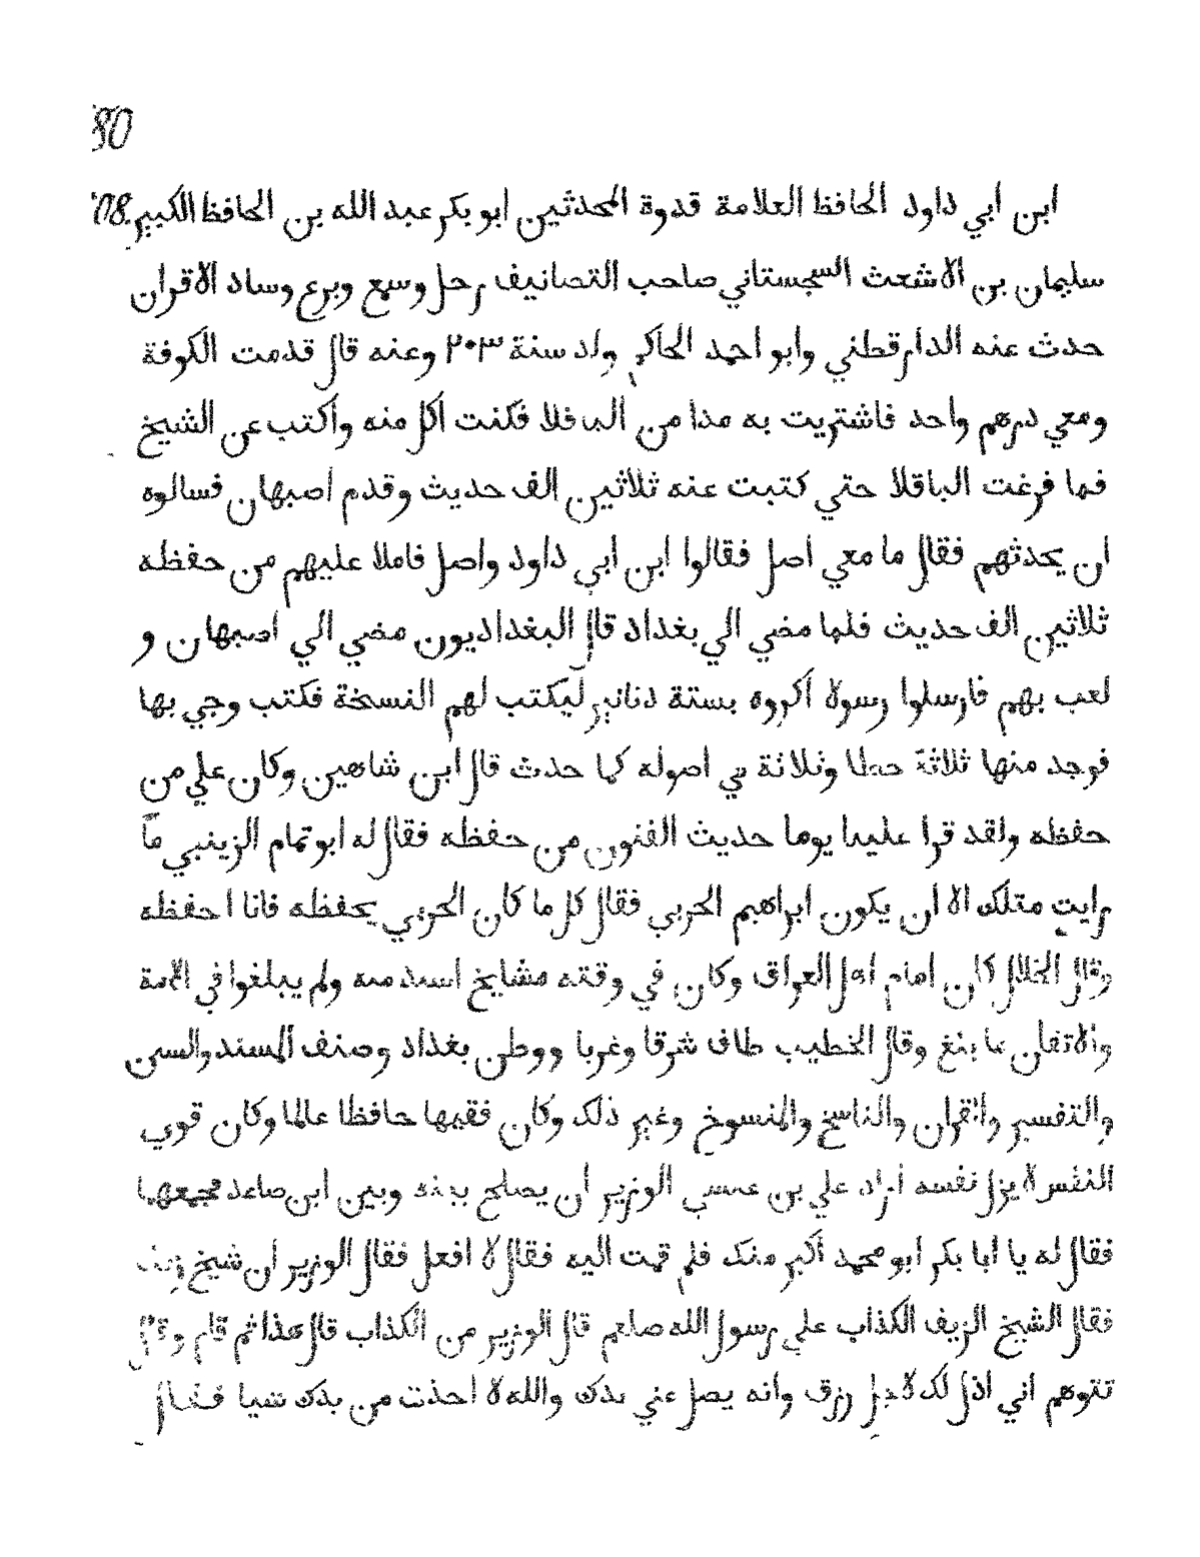 80
108. ابن أبي داود الحافظ العلامة قدوة المحدثين ابو بكر عبد الله بن الحافظ الكبير
سليمان بن الاشعث السجستاني صاحب التصانيف رحل وسمع وبرع وساد الاقران
حدث عنه الدارقطني وابو احمد الحاكم ولد سنة ٢٠٣ وعنه قال قدمت الكوفة
ومعي درهم واحد فاشتريت به مدا من الباقلا فكنت اكل منه واكتب عن الشيخ
فما فرغت الباقلا حتي كتبت عنه ثلاثين الف حديث وقدم اصبهان فسالوه
ان يحدثهم فقال ما معي اصل فقالوا ابن ابي داود واصل فاملا عليهم من حفظه
ثلاثين الف حديث فلما مضي الي بغداد قال البغداديون مضي الي اصبهان و
لعب بهم فارسلوا رسولا اكروه بستة دنانير ليكتب لهم النسخة فكتب وجي بها
فوجد منها ثلاثة خطا وثلاثة في اصوله كما حدث قال ابن شاهين وكان علي من
حفظه ولقد قرا علينا يوما حديث الفنون من حفظه فقال له ابو تمام الزينبي ما
رايت مثلك الا ان يكون ابراهيم الحربي فقال كل ما كان الحربي يحفظه فانا احفظه
وقال الخلال كان امام اهل العراق وكان في وقته مشايخ اسند منه ولم يبلغوا في الائمة
والاتقان ما بلغ وقال الخطيب طاف شرقا وغربا ووطن بغداد وصنف المسند والسنن
والتفسير والقران والناسخ والمنسوخ وغير ذلك وكان فقيها حافظا عالما وكان قوي
النفس لا يزل نفسه اراد علي بن عيسي الوزير ان يصلح بينه وبين ابن صاعد فجمعهما
فقال له يا ابا بكر ابو محمد اكبر منك فلم قمت اليه فقال لا افعل فقال الوزير ان شيخ زيف
فقال الشيخ الزيف الكذاب علي رسول الله صلعم قال الوزير من الكذاب قال هذا ثم قام وقال
تتوهم اني اذل لك لاجل رزق وانه يصل علي يدك والله لا اخذت من يدك شيا فقال